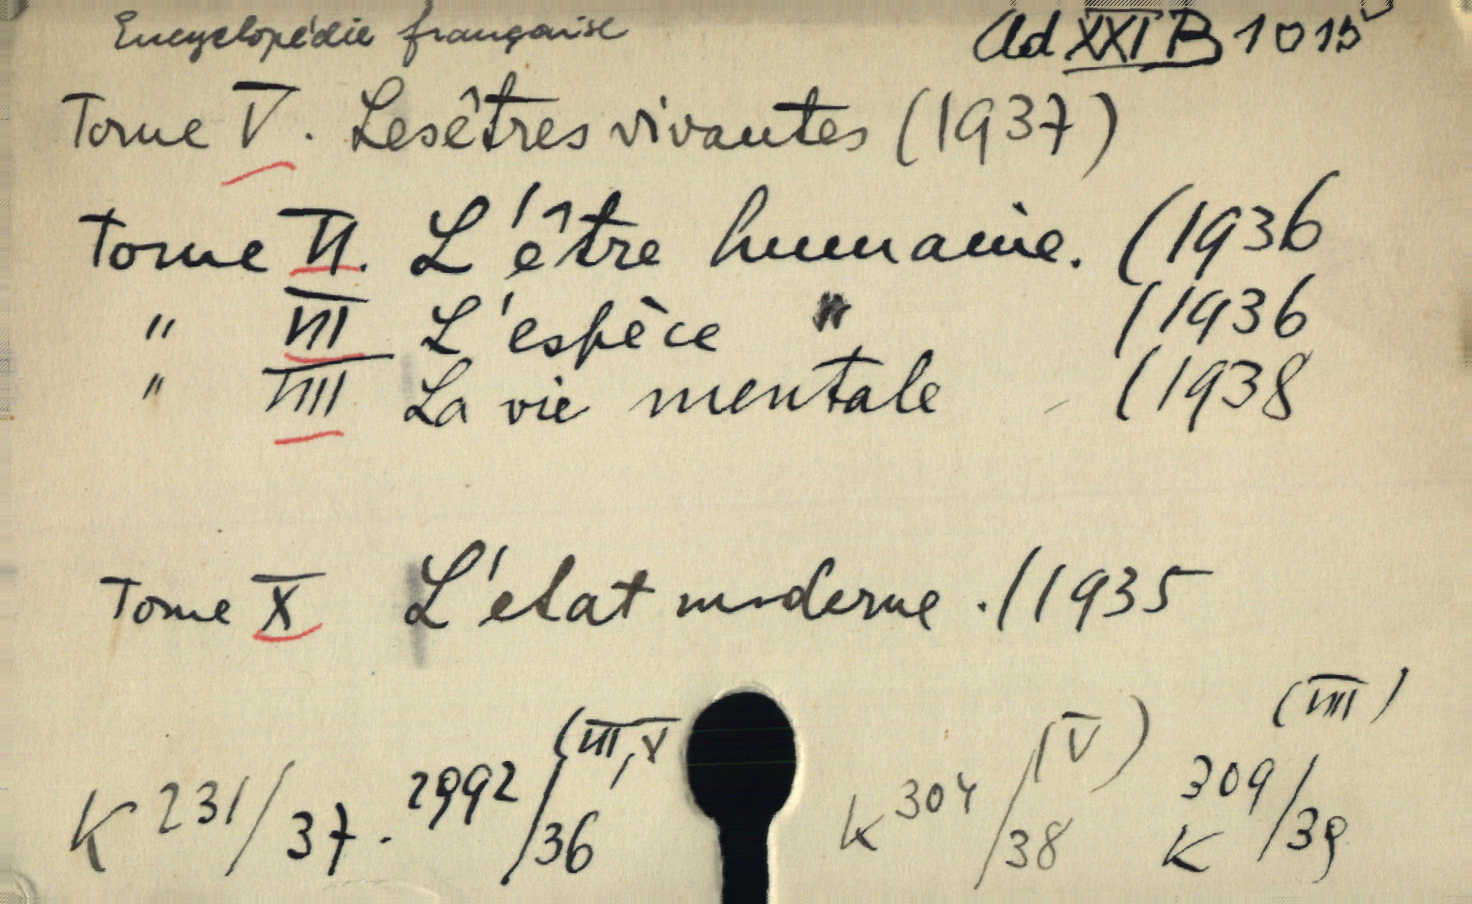 Encyclopédie française Ad XXI B 1015
Tome V. Les êtres vivantes (1937)
Tome VI. L'être humaine. (1936
" VII L'espèce " (1936
" VIII La vie mentale (1938
Tome X L'etat moderne. (1935
K 231/37. 2992/36 (VII, X K 304/38 (V) K 309/39 (VIII)